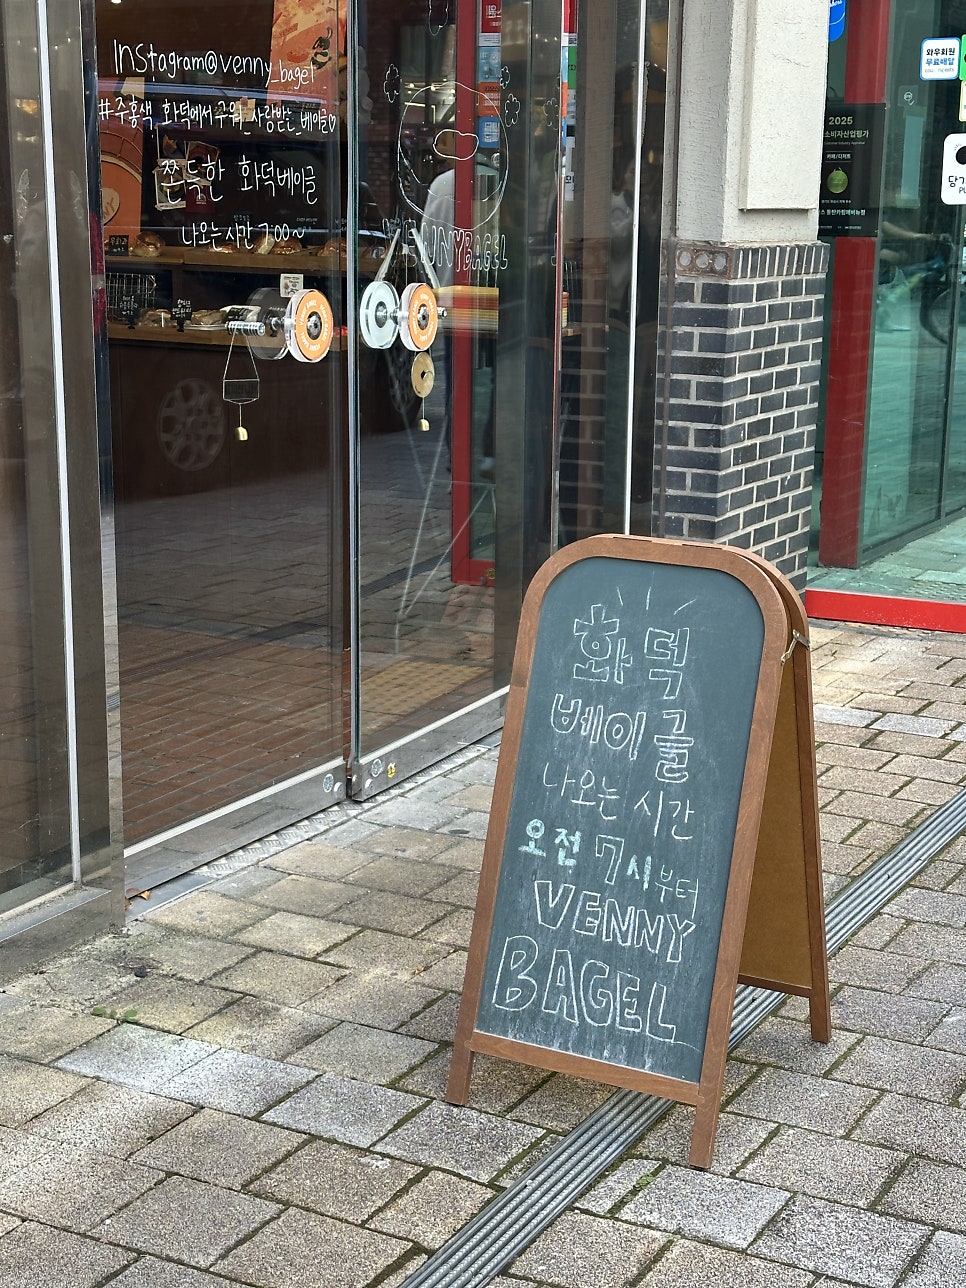 Instagram@venny_bagel
#주홍색_화덕에서구워_사랑받는_베이글♡
쫀득한 화덕베이글
나오는시간 7:00~
VENNYBAGEL
화덕
베이글
나오는 시간
오전 7시부터
VENNY
BAGEL
와우회원
무료배달
2025
소비자산업평가
카페/디저트